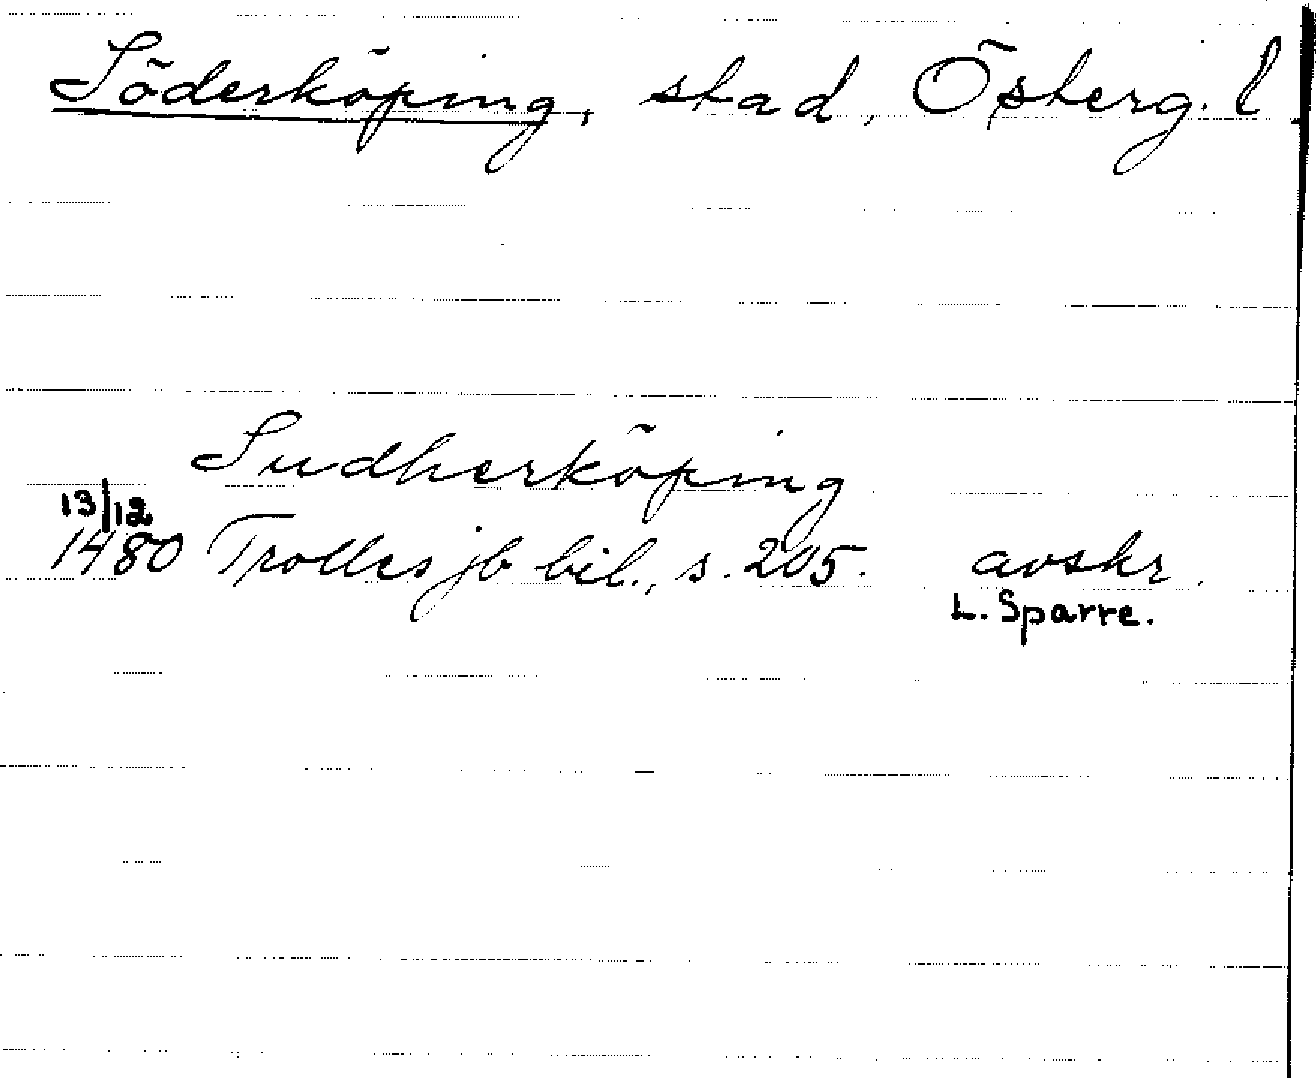 Söderköping, stad, Österg. l.
Sudherköping
13/12
1480 Trolles jb bil., s. 205. avskr.
L. Sparre.